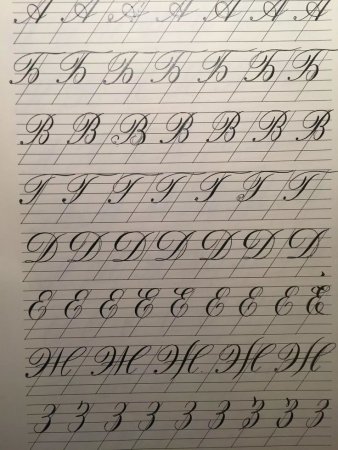 А А А А А А А
Б Б Б Б Б Б Б
В В В В В В В
Г Г Г Г Г Г Г
Д Д Д Д Д Д Д
Е Е Е Е Е Е Е Е Е
Ж Ж Ж Ж Ж
З З З З З З З З З